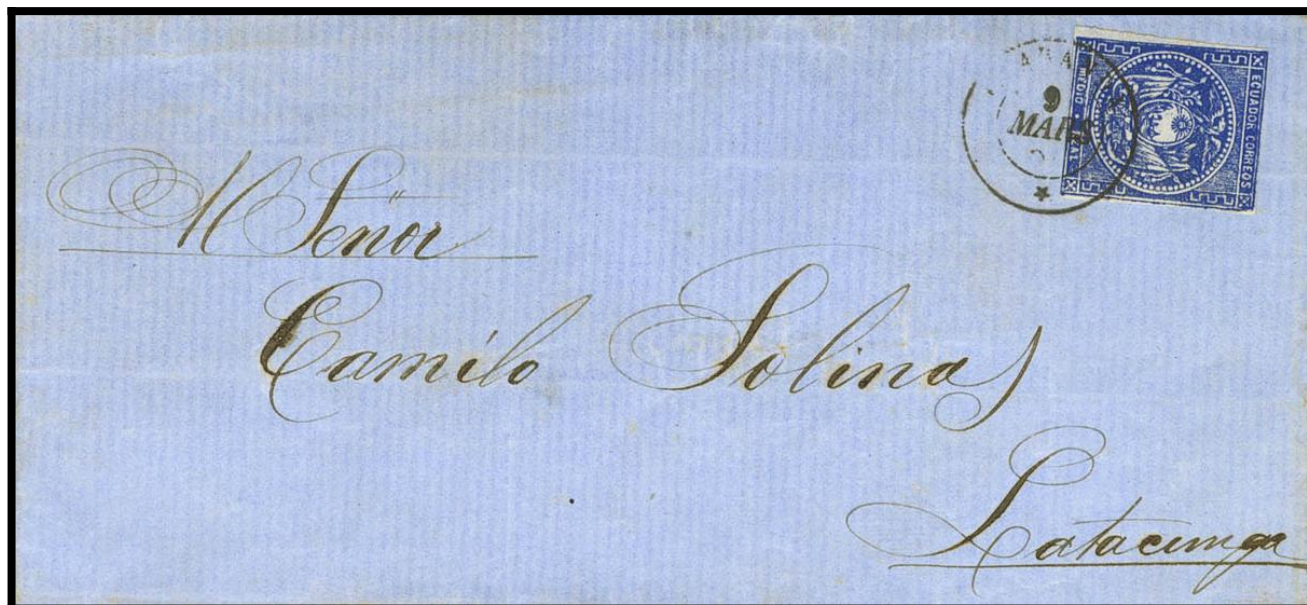 9
MARS
MEDIO
ECUADOR CORREOS
Al Señor
Camilo Solinas
Latacunga